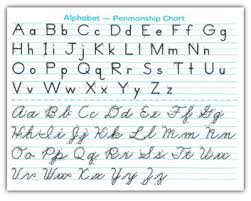 Alphabet — Penmonship Chart
Aa Bb Cc Dd Ee Ff Gg
Hh Ii Jj Kk Ll Mm Nn
Oo Pp Qq Rr Ss Tt Uu
Vv Ww Xx Yy Zz
Aa Bb Cc Dd Ee Ff Gg
Hh Ii Jj Kk Ll Mm Nn
Oo Pp Qq Rr Ss Tt Uu
Vv Ww Xx Yy Zz